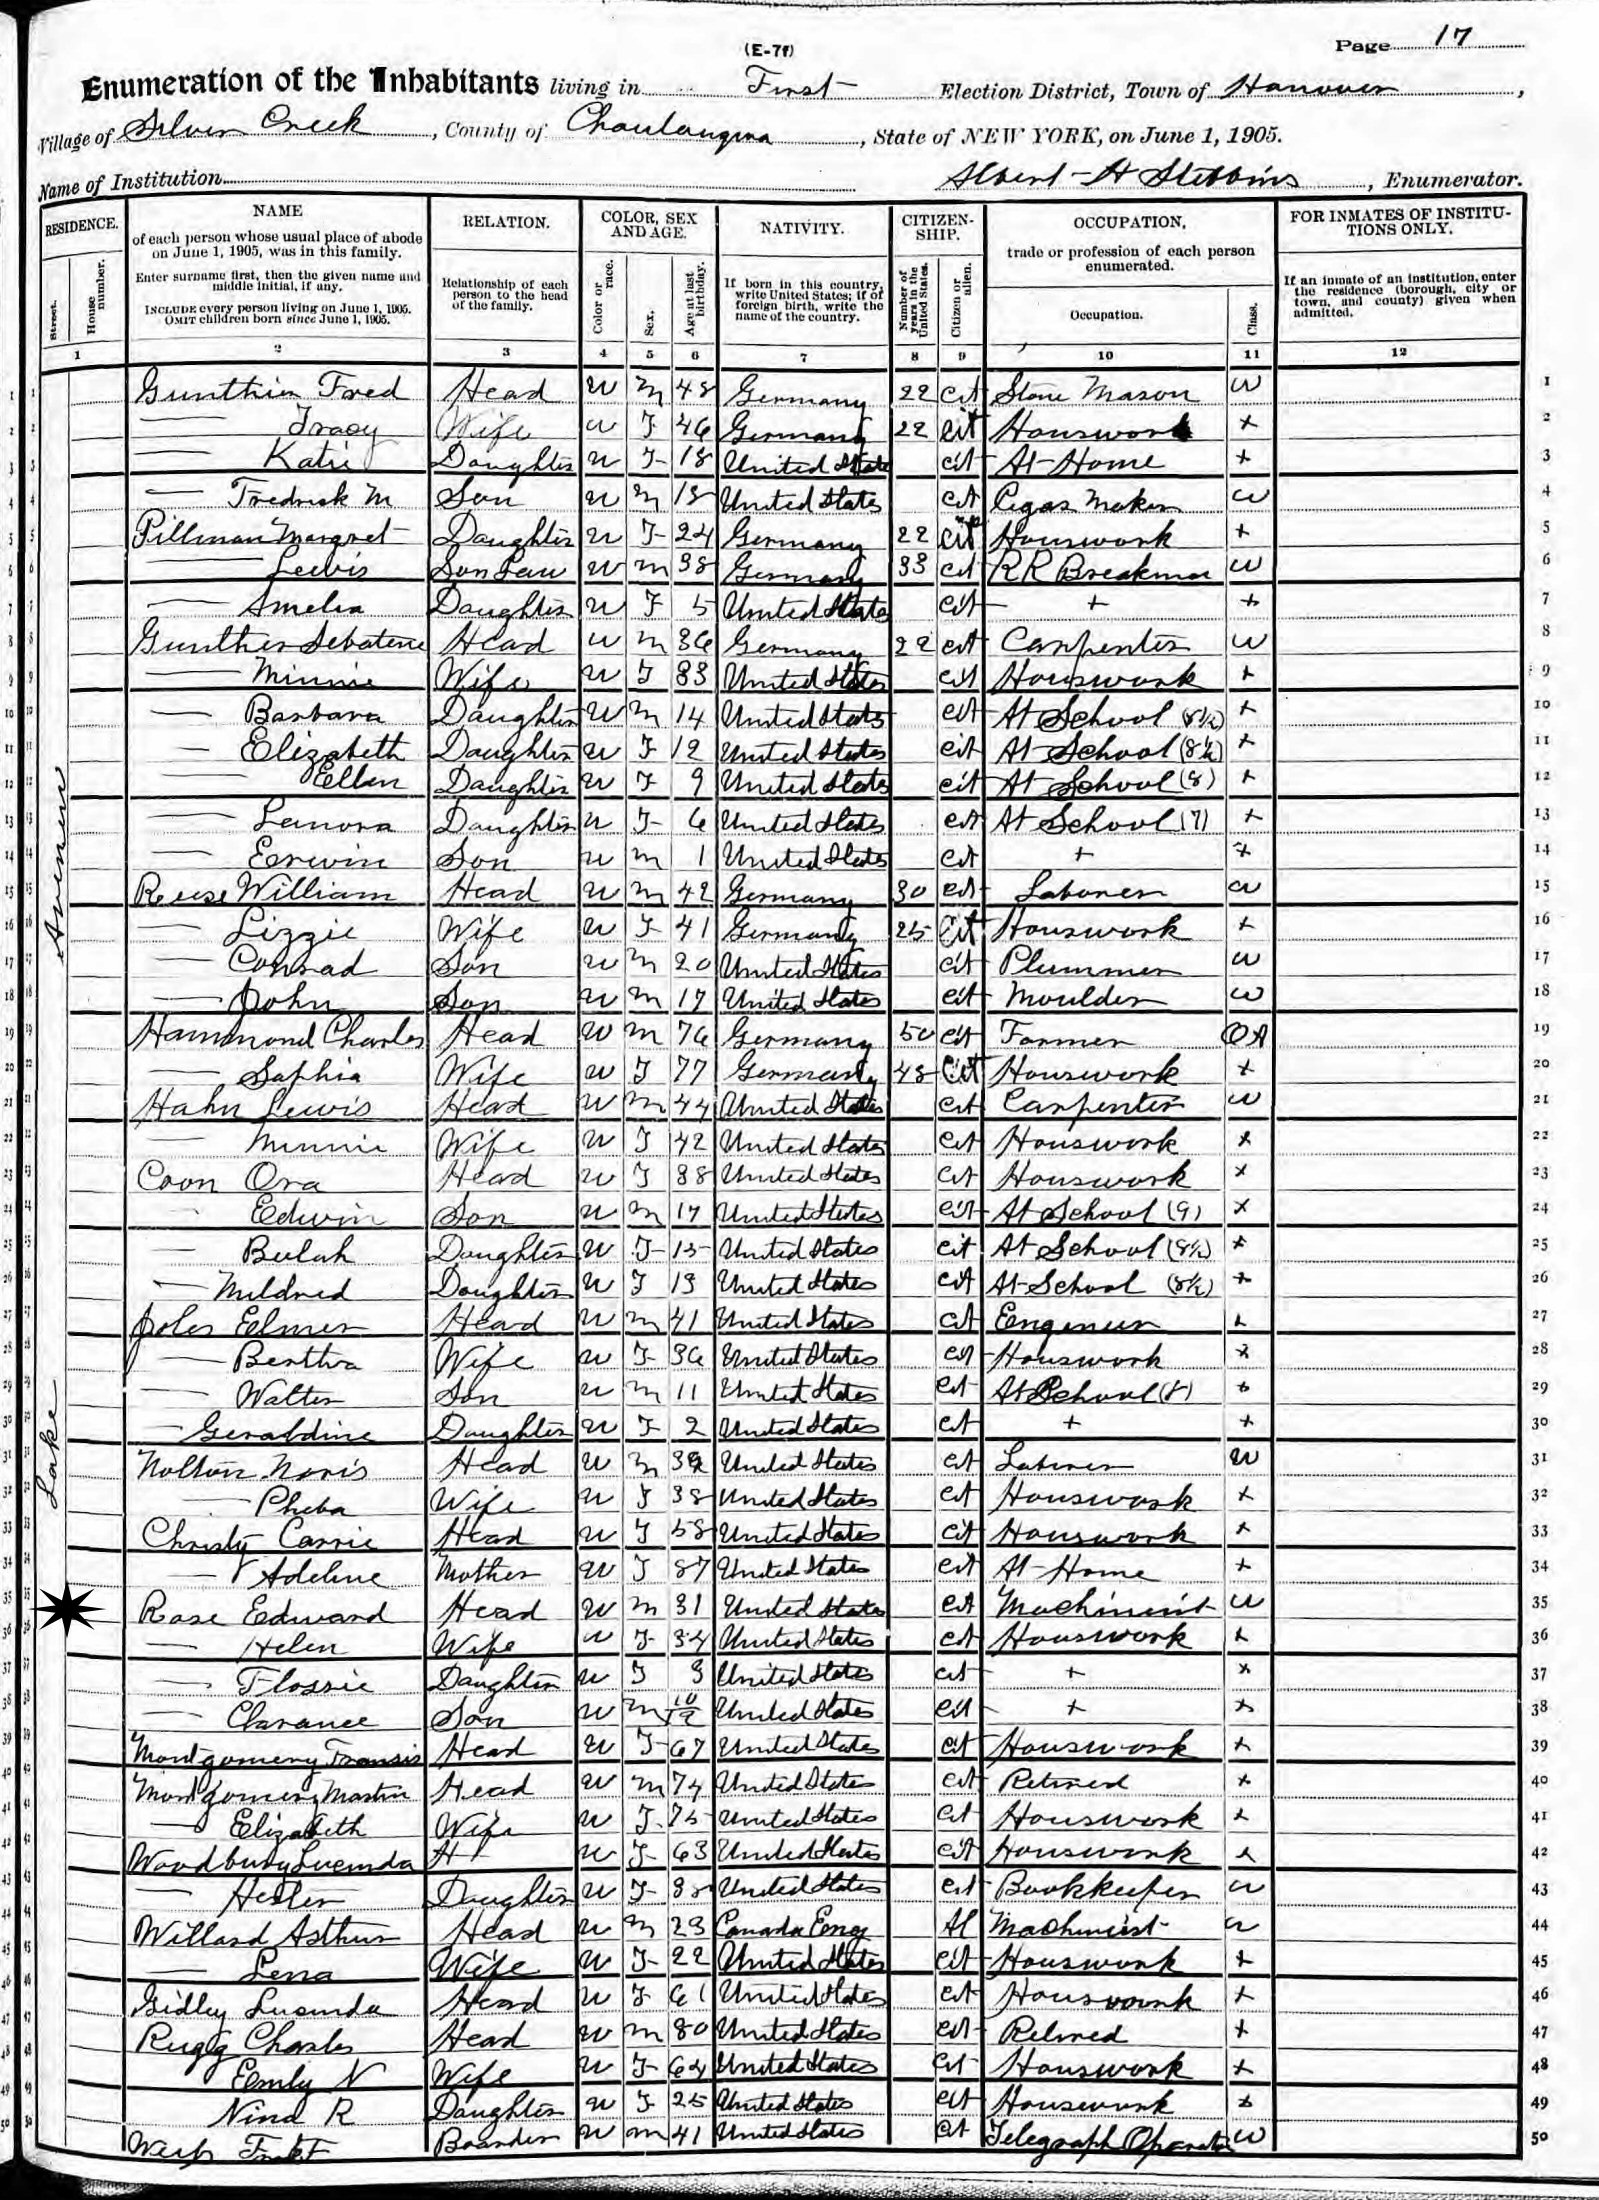 (E-7f)
Page 17
Enumeration of the Inhabitants living in First Election District, Town of Hanover,
Village of Silver Creek, County of Chautauqua, State of NEW YORK, on June 1, 1905.
Name of Institution Albert H Stebbins, Enumerator.
RESIDENCE. NAME RELATION. COLOR, SEX AND AGE. NATIVITY. CITIZEN-SHIP. OCCUPATION, FOR INMATES OF INSTITU-TIONS ONLY.
Street. House number.
of each person whose usual place of abode on June 1, 1905, was in this family.
Enter surname first, then the given name and middle initial, if any.
INCLUDE every person living on June 1, 1905. OMIT children born since June 1, 1905.
Relationship of each person to the head of the family.
Color or race. Sex. Age at last birthday.
If born in this country, write United States; if of foreign birth, write the name of the country.
Number of years in the United States. Citizen or alien.
trade or profession of each person enumerated.
Occupation. Class.
If an inmate of an institution, enter the residence (borough, city or town, and county) given when admitted.
1 2 3 4 5 6 7 8 9 10 11 12
Lake Avenue
1 Gunthier Fred Head W M 48 Germany 22 cit Stone Mason W 1
2 — Tracy Wife W F 46 Germany 22 cit Houswork x 2
3 — Katie Daughter W F 18 United State cit At Home x 3
4 — Fredrick M Son W M 15 United States cit Cigar Maker W 4
5 Pillman Margret Daughter W F 24 Germany 22 cit Houswork x 5
6 — Lewis Son Law W M 38 Germany 33 cit RR Breakman W 6
7 — Amelia Daughter W F 5 United States cit + x 7
8 Gunther Sebatene Head W M 36 Germany 22 cit Carpenter W 8
9 — Minnie Wife W F 33 United States cit Houswork x 9
10 — Barbara Daughter W M 14 United States cit At School (8½) x 10
11 — Elizabeth Daughter W F 12 United States cit At School (8½) x 11
12 — Ellen Daughter W F 9 United States cit At School (8) x 12
13 — Lenora Daughter W F 6 United States cit At School (7) x 13
14 — Erwin Son W M 1 United States cit + x 14
15 Reese William Head W M 42 Germany 30 cit Laborer W 15
16 — Lizzie Wife W F 41 Germany 25 cit Houswork x 16
17 — Conrad Son W M 20 United States cit Plummer W 17
18 — John Son W M 17 United States cit Moulder W 18
19 Hammond Charles Head W M 76 Germany 50 cit Farmer OA 19
20 — Saphia Wife W F 77 Germany 48 cit Houswork x 20
21 Hahn Lewis Head W M 44 United States cit Carpenter W 21
22 — Minnie Wife W F 42 United States cit Houswork x 22
23 Coon Ora Head W F 38 United States cit Houswork x 23
24 — Edwin Son W M 17 United States cit At School (9) x 24
25 — Bulah Daughter W F 15 United States cit At School (8½) x 25
26 — Mildred Daughter W F 13 United States cit At School (8½) x 26
27 Joles Elmer Head W M 41 United States cit Engineer x 27
28 — Bertha Wife W F 36 United States cit Houswork x 28
29 — Walter Son W M 11 United States cit At School (8) x 29
30 — Geraldine Daughter W F 2 United States cit + x 30
31 Nolton Noris Head W M United States cit Laborer W 31
32 — Pheba Wife W F 38 United States cit Houswork x 32
33 Christy Carrie Head W F 58 United States cit Houswork x 33
34 — Adeline Mother W F 87 United States cit At Home x 34
35 Rase Edward Head W M 31 United States cit Machinist W 35
36 — Helen Wife W F 34 United States cit Houswork x 36
37 — Flossie Daughter W F 3 United States cit + x 37
38 — Clarance Son W M 10/12 United States cit + x 38
39 Montgomery Fransis Head W F 67 United States cit Houswork x 39
40 Montgomery Martin Head W M 74 United States cit Retired x 40
41 — Elizabeth Wife W F 75 United States cit Houswork x 41
42 Woodbury Lucinda H W F 63 United States cit Houswork x 42
43 — Hester Daughter W F 38 United States cit Bookkeeper W 43
44 Willard Arthur Head W M 23 Canada Eng Al Machinist W 44
45 — Lena Wife W F 22 United States cit Houswork x 45
46 Gidley Lusinda Head W F 61 United States cit Houswork x 46
47 Rugg Charles Head W M 80 United States cit Retired x 47
48 Emily N Wife W F 64 United States cit Houswork x 48
49 Nina R Daughter W F 25 United States cit Houswork x 49
50 Boarder W M 41 United States cit Telegraph Operator W 50